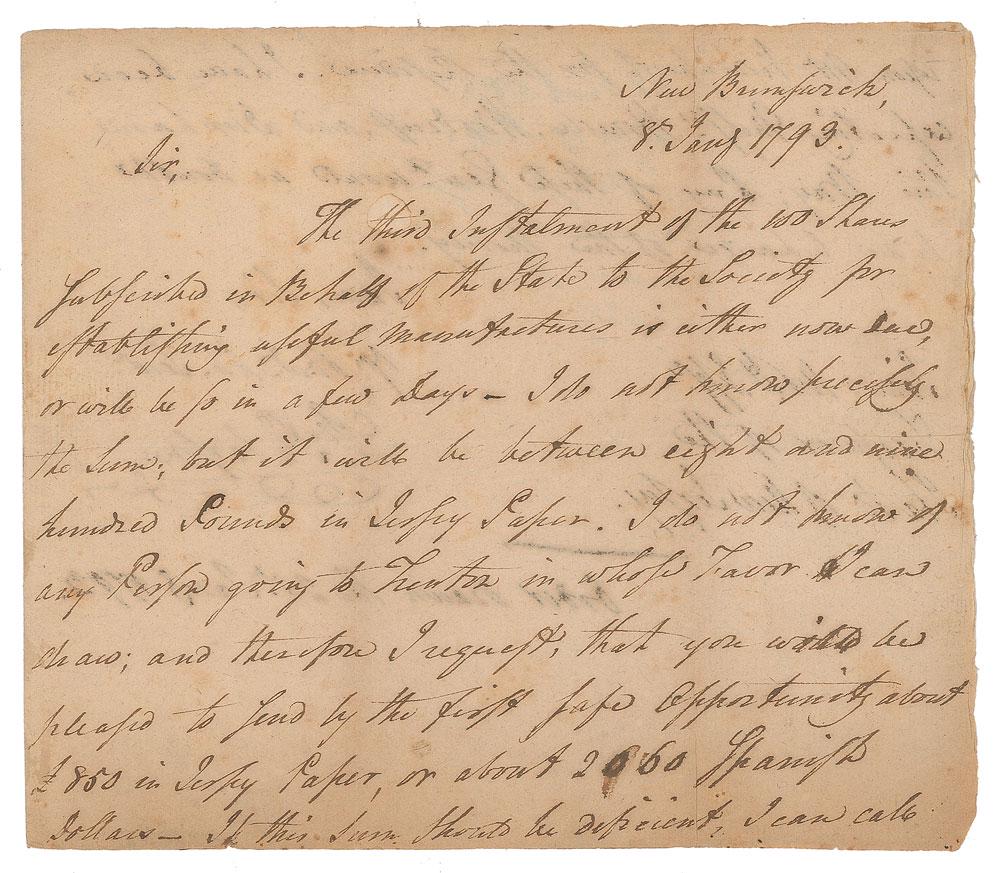 New Brunswick,
8. Jany 1793.
Sir,
The third Instalment of the 100 Shares
subscribed in Behalf of the State to the Society for
establishing useful manufactures is either now due,
or will be so in a few Days – I do not know precisely
the sum; but it will be between eight and nine
hundred Pounds in Jersey Paper. I do not know of
any Person going to Trenton in whose Favor I can
draw; and therefore I request, that you would be
pleased to send by the first safe Opportunity about
£850 in Jersey Paper, or about 2060 Spanish
Dollars – If this Sum should be deficient, I can call